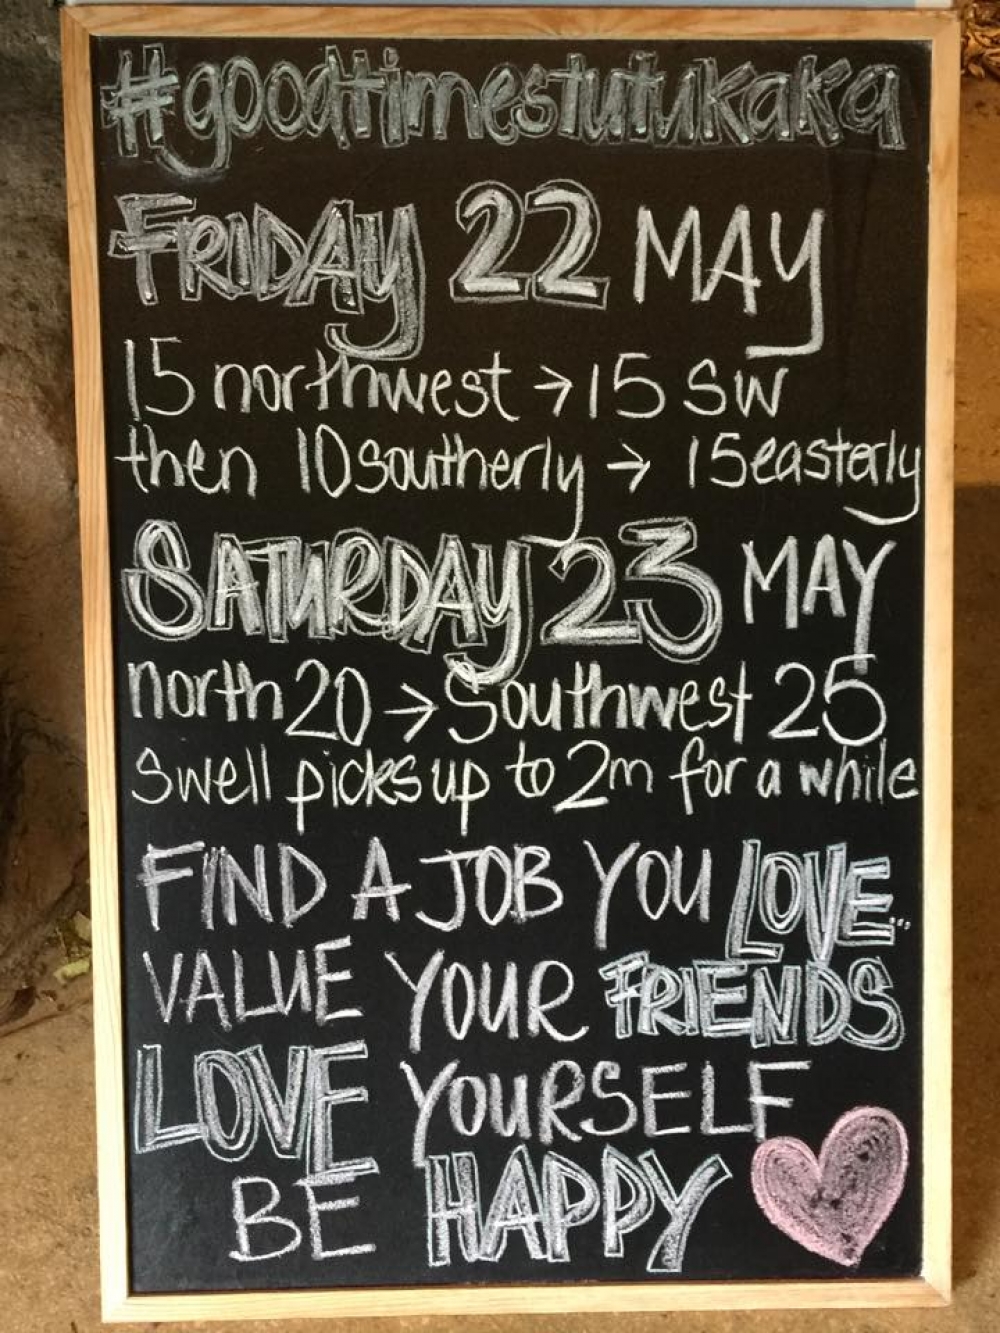 #goodtimestutukaka
FRIDAY 22 MAY
15 northwest → 15 SW
then 10 southerly → 15 easterly
SATURDAY 23 MAY
north 20 → Southwest 25
Swell picks up to 2m for a while
FIND A JOB YOU LOVE...
VALUE YOUR FRIENDS
LOVE YOURSELF
BE HAPPY